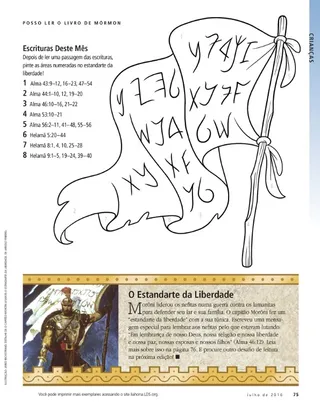 POSSO LER O LIVRO DE MÓRMON
CRIANÇAS
Escrituras Deste Mês
Depois de ler uma passagem das escrituras,
pinte as áreas numeradas no estandarte da
liberdade!
1 Alma 43:9–12, 16–23, 47–54
2 Alma 44:1–10, 12, 19–20
3 Alma 46:10–16, 21–22
4 Alma 53:10–21
5 Alma 56:2–11, 41–48, 55–56
6 Helamã 5:20–44
7 Helamã 8:1, 4, 10, 25–28
8 Helamã 9:1–5, 19–24, 39–40
O Estandarte da Liberdade
Morôni liderou os nefitas numa guerra contra os lamanitas
para defender seu lar e sua família. O capitão Morôni fez um
"estandarte da liberdade" com a sua túnica. Escreveu uma mensagem
especial para lembrar aos nefitas pelo que estavam lutando:
"Em lembrança de nosso Deus, nossa religião e nossa liberdade
e nossa paz, nossas esposas e nossos filhos" (Alma 46:12). Leia
mais sobre isso na página 76. E procure outro desafio de leitura
na próxima edição!
Você pode imprimir mais exemplares acessando o site liahona.LDS.org.
Julho de 2016 75